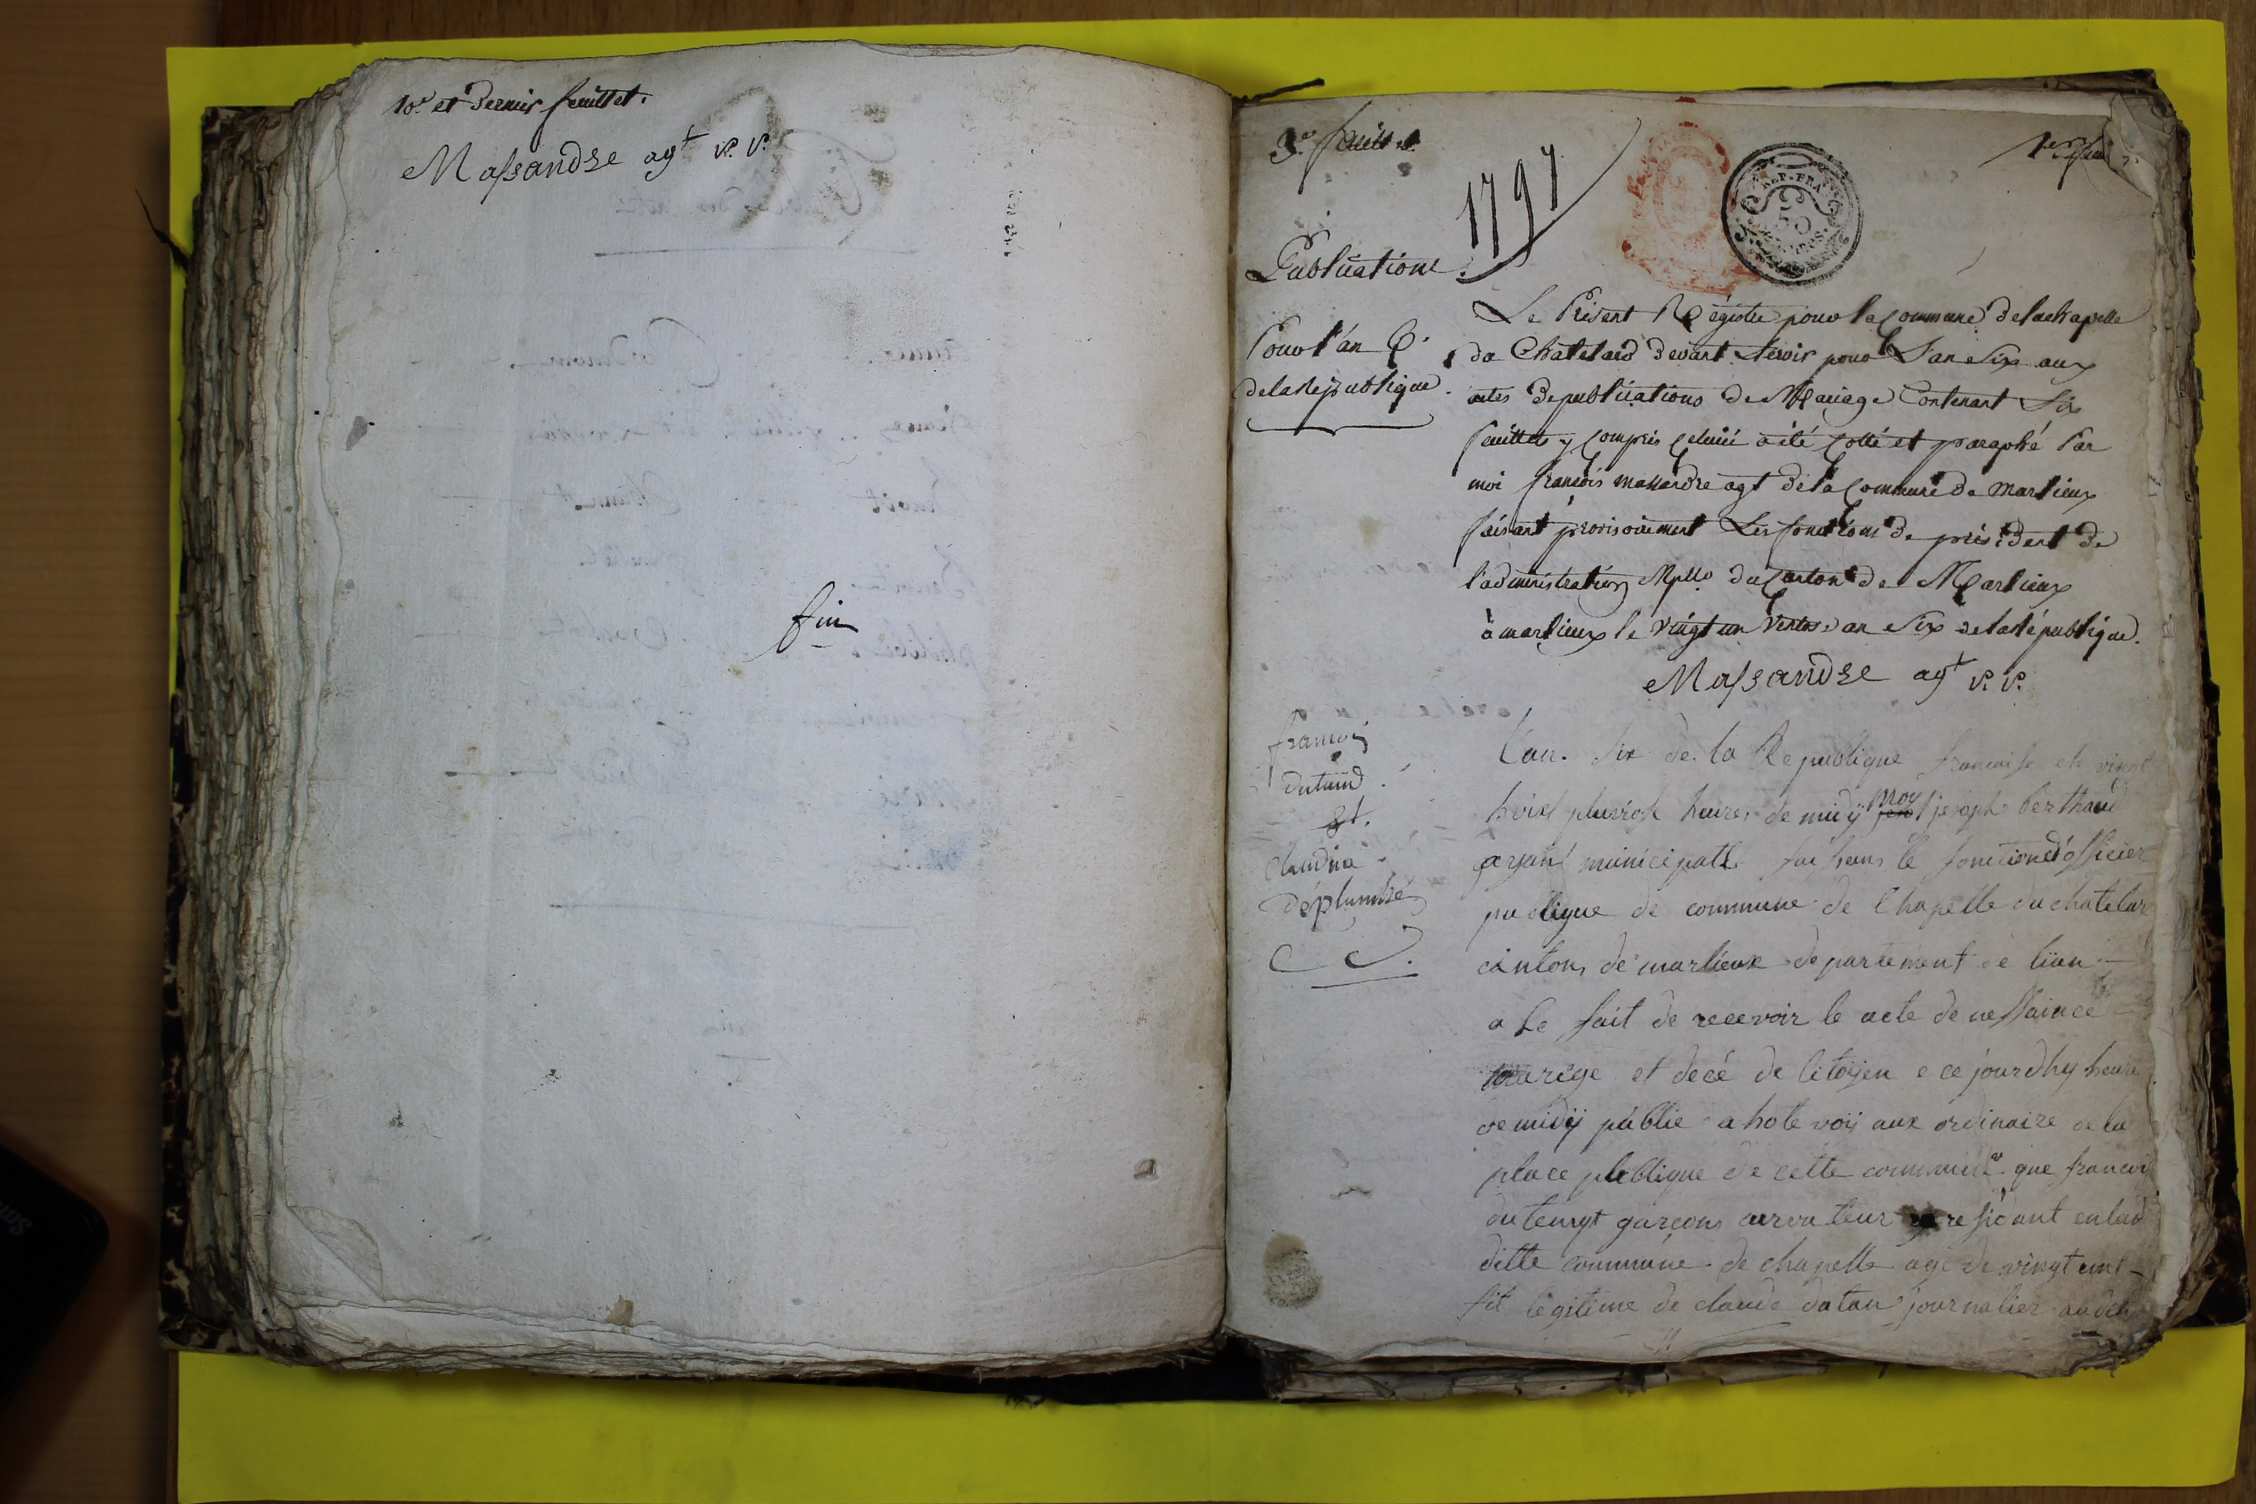 10e et dernier feuillet.
Massandre agt v. p.
fin
3e feuillet
1er feuil
1797
REP. FRA
50
CENTIMES
Publications
Pour l'an 6e
de la Republique
Le Présent Régistre pour la Commune de la chapelle
du Chatelard devant servir pour L'an Six aux
actes de publications de Mariage Contenant Six
feuillets y Compris Celuici a été Cotté et paraphé Par
moi françois massandre agt de la Commune de Marlieux
faisant provisoirement Les fonctions de président de
l'administration Mplle du Canton de Marlieux
à marlieux le vingt un Ventose an Six de la république.
Massandre agt v. p.
francois
dutaind
et.
claudine
déplumhé
L'an. six de la Republique francaise ele vingt
huist pluviose heures de midÿ moy jeseph Berthaud
agant municipalle faisseans le fonctione d'officier
publique de commune de Chapelle du chatelard
cantons de marlieux departement de lian
a le fait de recevoir le acte de nessaince
marége et décé de citoÿen e ce jourdhy heure
de midÿ publie a hote voÿ aux ordinaire de la
place plublique de cette commune que francois
du temgt garçons cervateur residant enlad
ditte commune de chapelle agé de vingt eins
fit legitime de claude dutan journalier audit